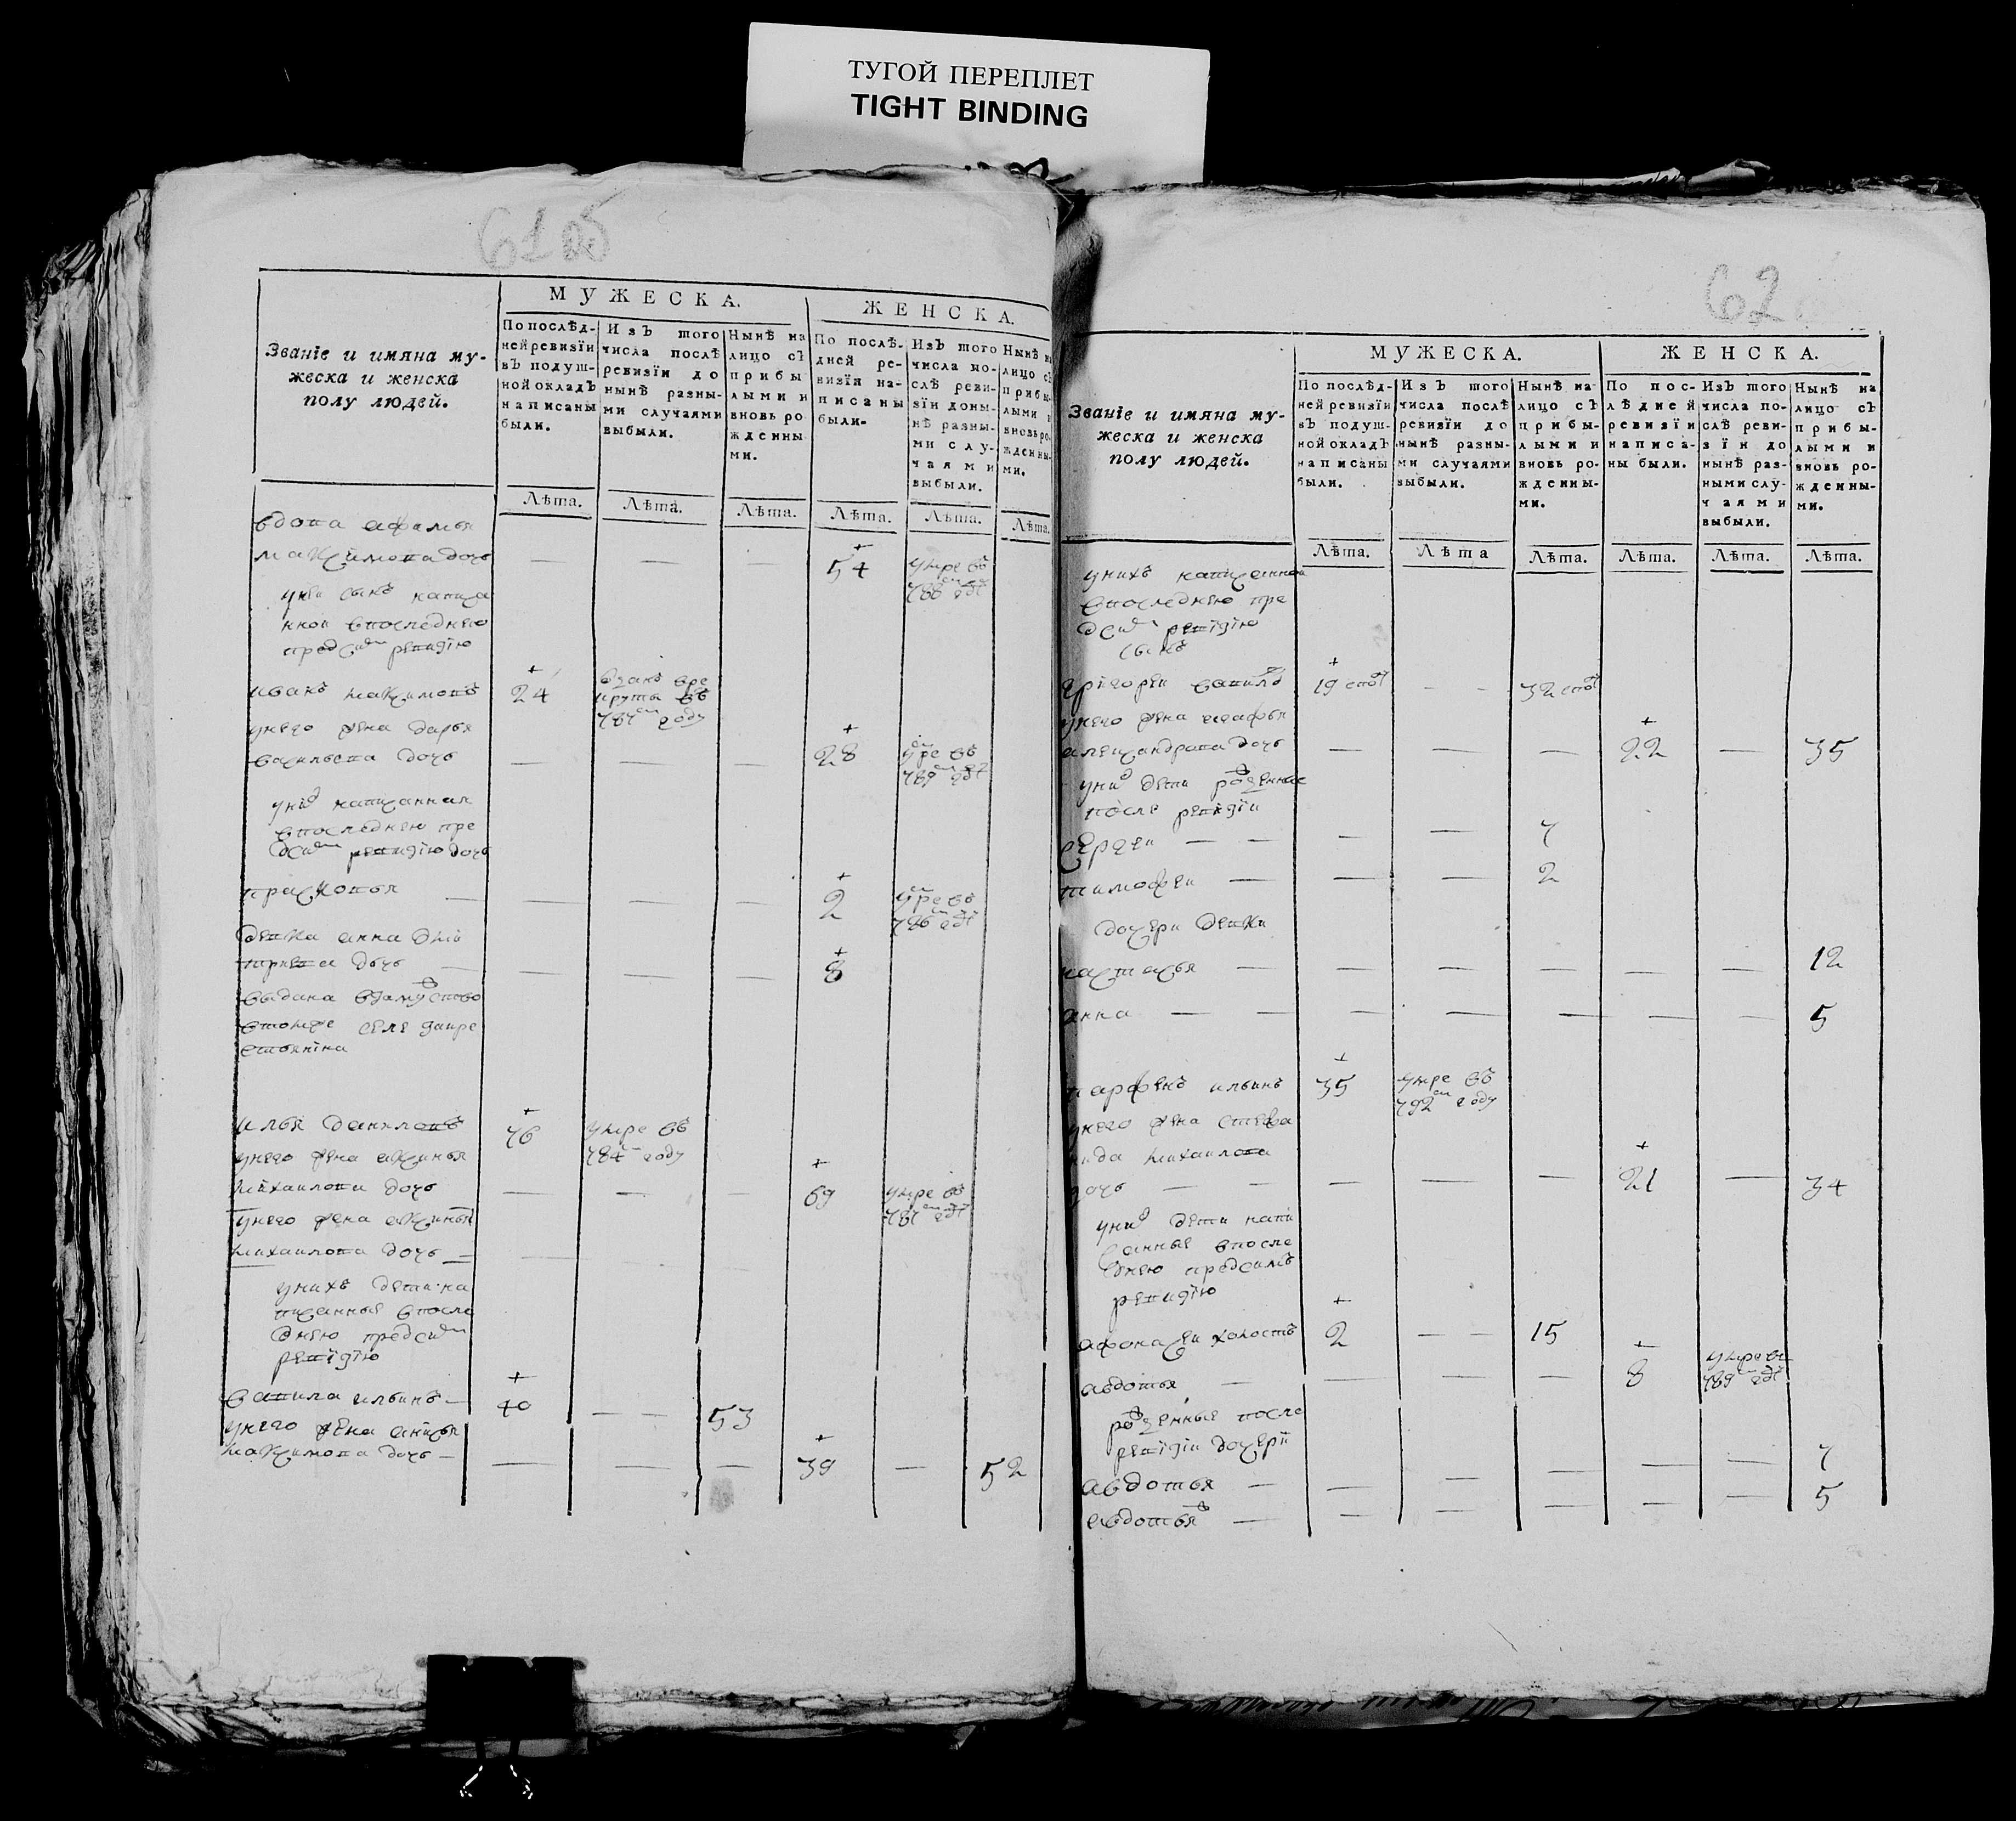 ТУГОЙ ПЕРЕПЛЕТ
TIGHT BINDING
61 об
Званіе и имяна му-
жеска и женска
полу людей.
МУЖЕСКА.
ЖЕНСКА.
По послѣд-
ней ревизіи
въ подуш-
ной окладъ
написаны
были.
Изъ того
числа послѣ
ревизіи до
нынѣ разны-
ми случаями
выбыли.
Нынѣ на
лицо съ
прибы
лыми и
вновь ро-
жденны
ми.
По послѣ-
дней ре-
визіи на-
писаны
были.
Изъ того
числа по-
слѣ реви-
зіи доны-
нѣ разны-
ми слу-
чаями
выбыли.
Нынѣ на
лицо съ
прибы-
лыми и
вновь ро-
жденны-
ми.
Лѣта. Лѣта. Лѣта. Лѣта. Лѣта. Лѣта.
вдова афимья
максимова дочь — — — 54 умре въ 788м годе
уней сынъ написа
нной впоследнею
предсим ревизию
иванъ максимовъ 24 взанъ вре круты въ 787м году
унего жена дарья
васильева дочь — — — 28 умре въ 789м годе
уних написанная
впоследнею пре
дсим ревизию дочь
прасковья — — — — 2 умре въ 786м годе
девка анна дми
триева дочь — — — — 8
выдана взамужство
втомже селе закре
стьянина
илья даниловъ 76 умре въ 784м году
унего жена аксинья
михаилова дочь — — — 69 умре въ 787м годе
унего жена аксинья
михаилова дочь — —
унихъ дети на
писанные впосле
днею предсим
ревизию
вавила ильинъ — 40 — — 53
унего жена анисья
максимова дочь — — — — 39 — 52
62
Званіе и имяна му-
жеска и женска
полу людей.
МУЖЕСКА.
ЖЕНСКА.
По послѣд-
ней ревизіи
въ подуш-
ной окладъ
написаны
были.
Изъ того
числа послѣ
ревизіи до
нынѣ разны-
ми случаями
выбыли.
Нынѣ на
лицо съ
прибы-
лыми и
вновь ро-
жденны-
ми.
По пос-
лѣдней
ревизіи
написа-
ны были.
Изъ того
числа по-
слѣ реви-
зіи до
нынѣ раз-
ными слу-
чаями
выбыли.
Нынѣ на
лицо съ
прибы-
лыми и
вновь ро-
жденны-
ми.
Лѣта. Лѣта Лѣта. Лѣта. Лѣта. Лѣта.
унихъ написанной
впоследнею пре
дсим ревизию
сынъ
григореи вавилов 19 — — 32
унего жена агафья
александрава дочь — — — 22 — 35
уних дети рожденные
после ревизии
сергеи — — — — 7
тимофеи — — — 2
дочери девки
настасья — — — — — — 12
анна — — — — — — — 5
парфенъ ильинъ 35 умре въ 792м году
унего жена степа
нида михаилова
дочь — — — — — 21 — 34
уних дети напи
санные впосле
днею предсимъ
ревизию
афонасеи холостъ 2 — — 15
авдотья — — — — 8 умре въ 789м годе
рожденные после
ревизии дочери
авдотья — — — — — — 7
авдотья ж — — — — — — 5